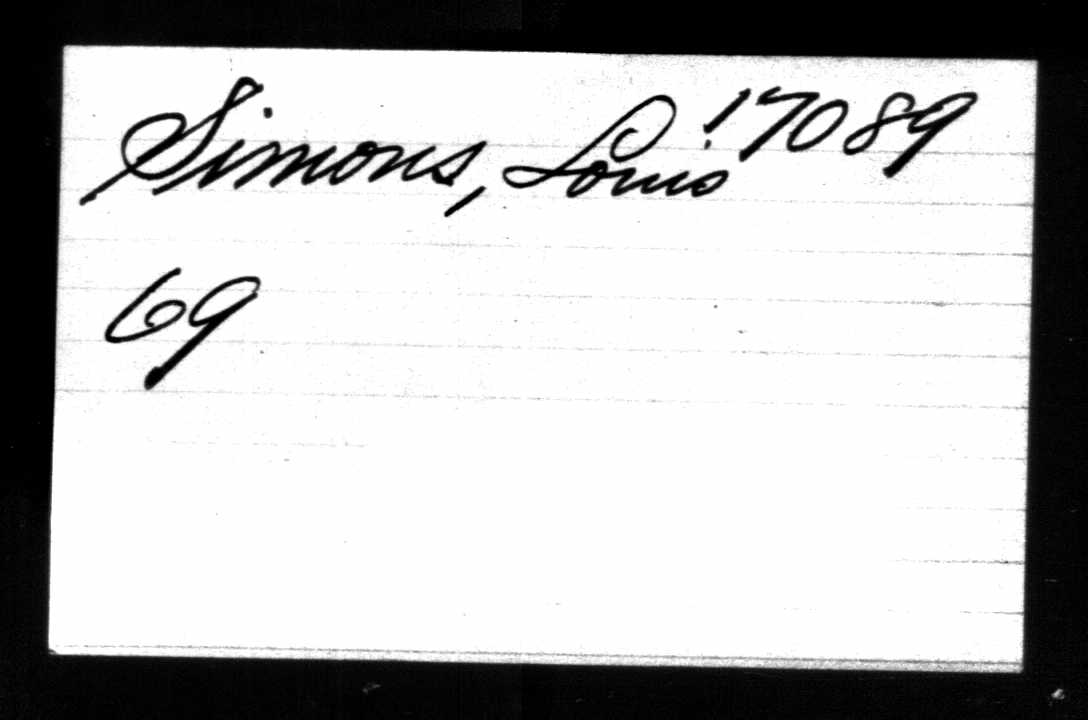 Simons, Louis 17089
69